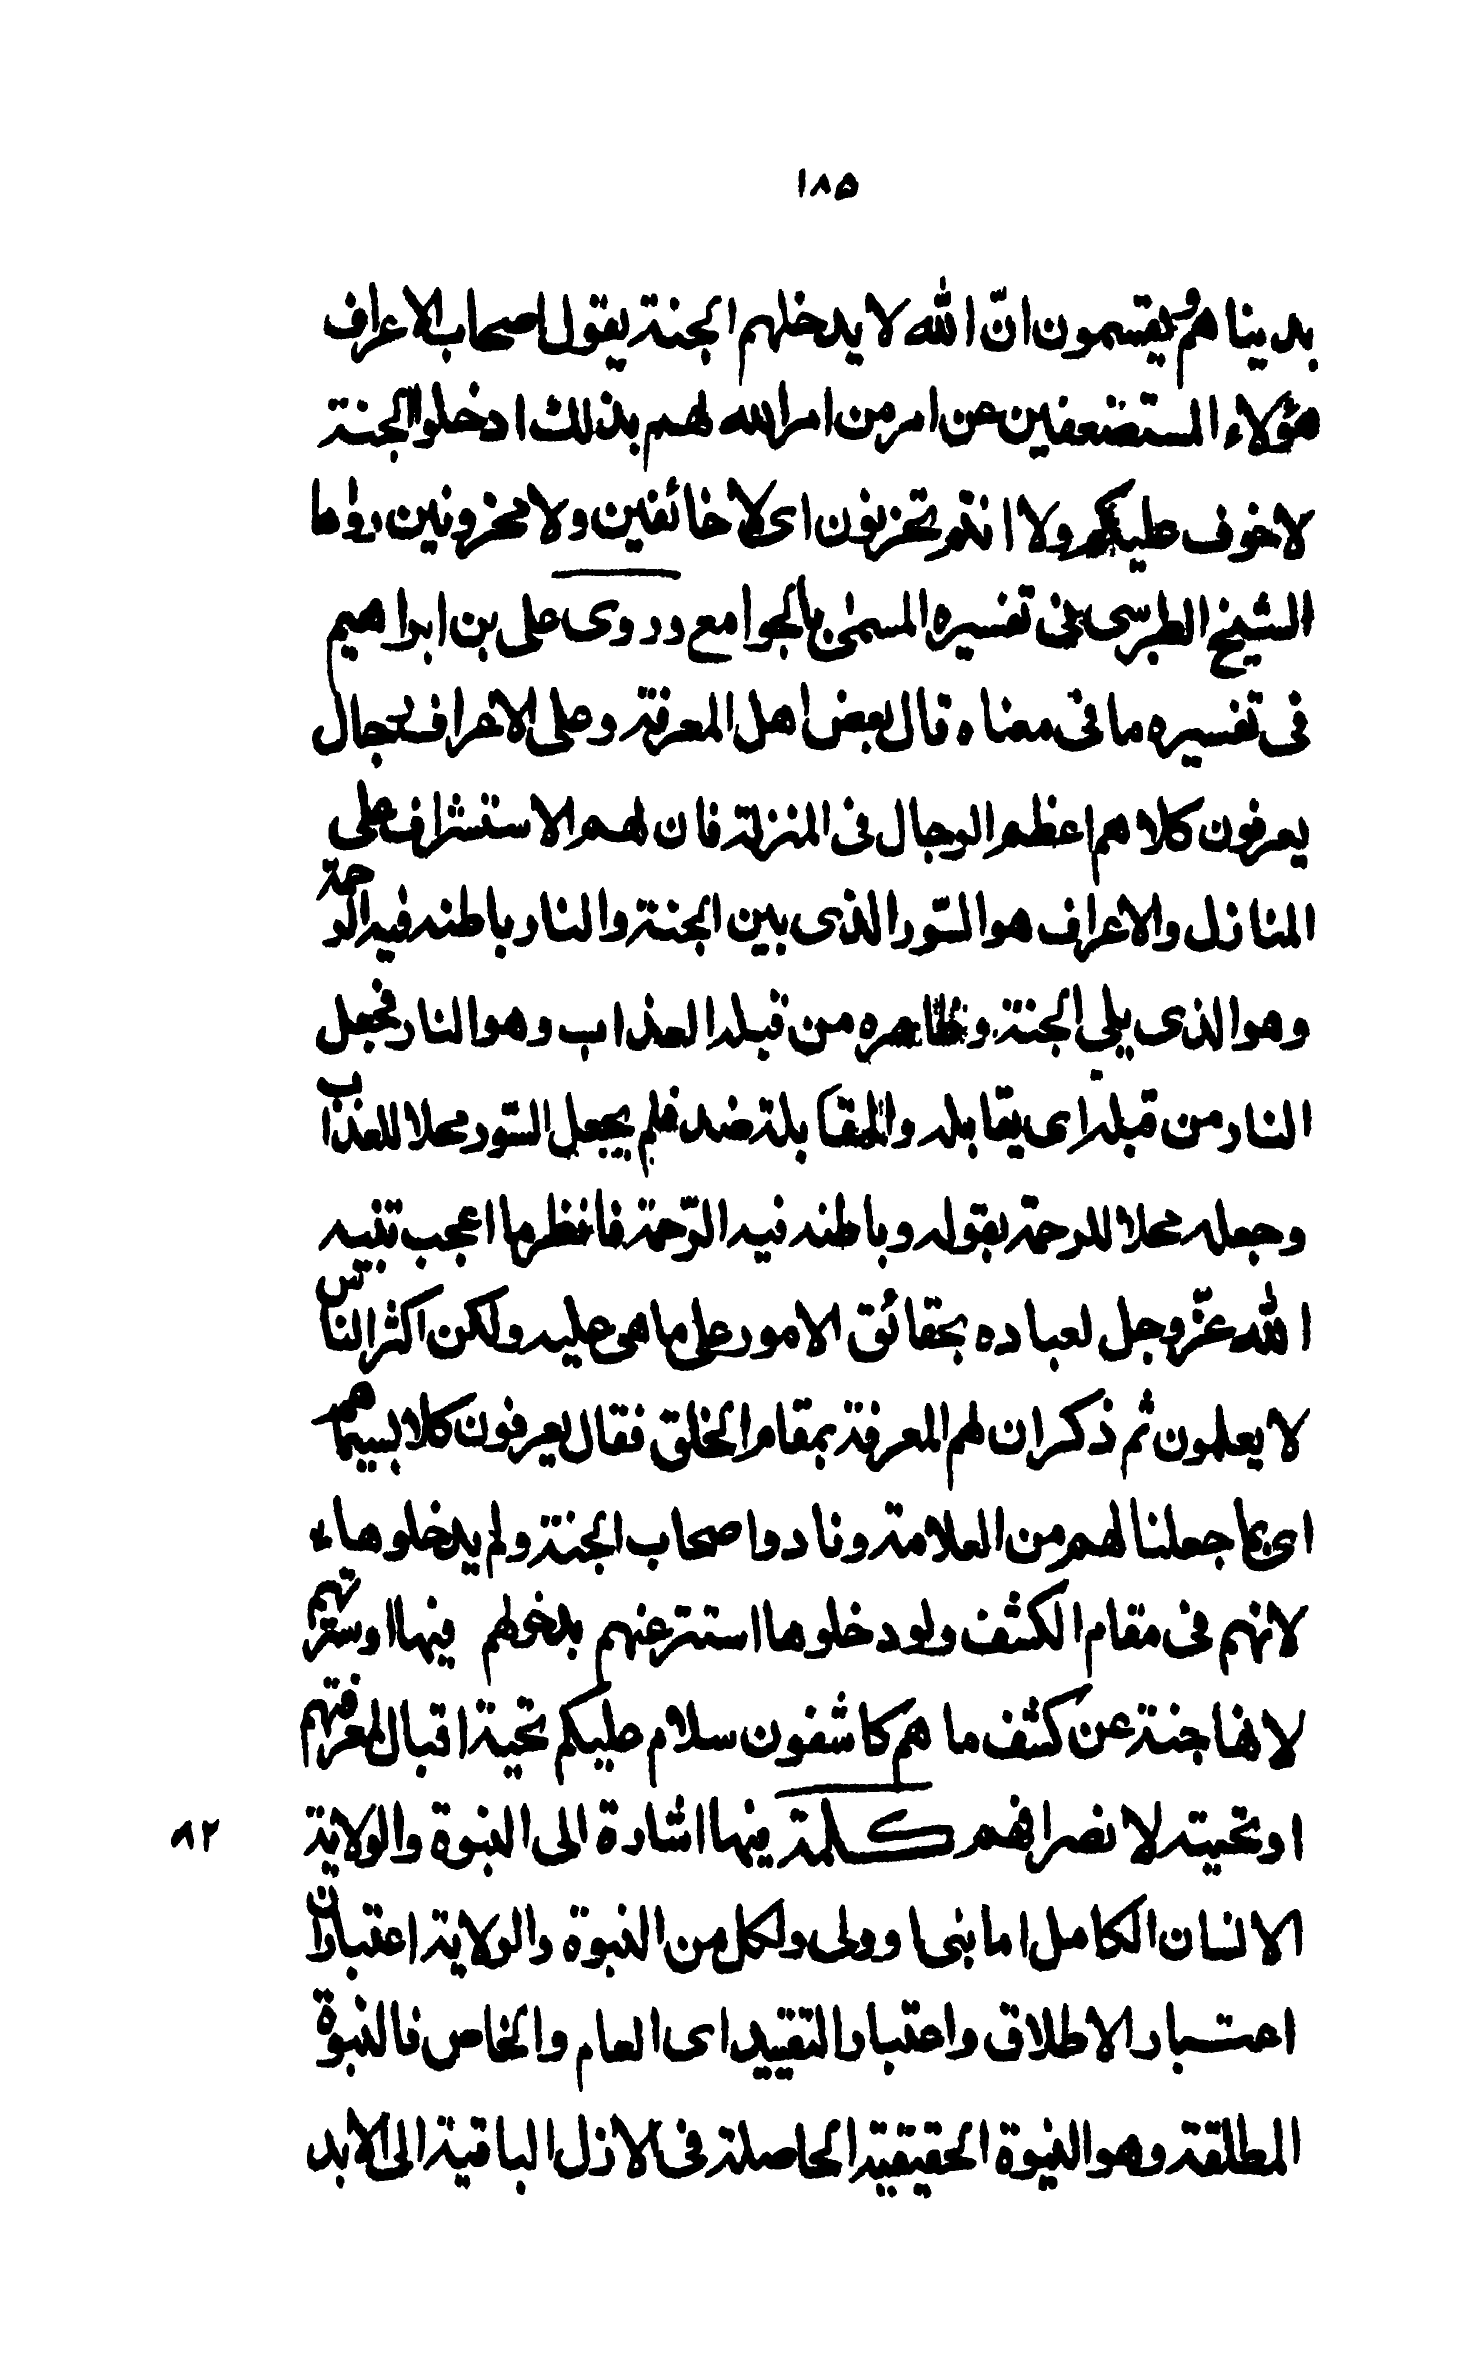 ١٨٥
بديناهم ويقسمون انّ الله لا يدخلهم الجنة يقول اصحاب الاعراف
هؤلاء المستضعفين عن امر من امر الله لهم بذلك ادخلوا الجنة
لا خوف عليكم ولا انتم تحزنون اى لا خائفين ولا محزونين رواها
الشيخ الطبرسى فى تفسيره المسمى بالجوامع وروى على بن ابراهيم
فى تفسيره ما فى معناه قال بعض اهل المعرفة وعلى الاعراف رجال
يعرفون كلا هم اعظم الرجال فى المنزلة فان لهم الاستشراف على
المنازل والاعراف هو السّور الذى بين الجنة والنار باطنه فيه الرحمة
وهو الذى يلي الجنة وظاهره من قبله العذاب وهو النار فجعل
النار من قبله اى يقابله والمقابلة ضد فلم يجعل السّور محلا للعذاب
وجعله محلا للرحمة بقوله وباطنه فيه الرّحمة فانظر ما اعجب تنبيه
الله عزّ وجل لعباده بحقائق الامور على ما هى عليه ولكن اكثر الناس
لا يعلمون ثم ذكر ان لهم المعرفة بمقام الخلق فقال يعرفون كلا بسيماهم
اى بما جعلنا لهم من العلامة ونادوا صحاب الجنة ولم يدخلوهاء
لانهم فى مقام الكشف ولو دخلوها استتر عنهم بدخولهم فيها او سترتهم
لانها جنة عن كشف ما هم كاشفون سلام عليكم تحية اقبال لمعرفتهم
او تحيته لانصرافهم كلمة فيها اشارة الى النبوة والولاية
٨٢
الانسان الكامل اما نبى او ولى ولكل من النبوة والولاية اعتباران
اعتبار الاطلاق واعتبار التقييد اى العام والخاص فالنبوة
المطلقة وهو النبوة الحقيقية الحاصلة فى الازل الباقية الى الابد